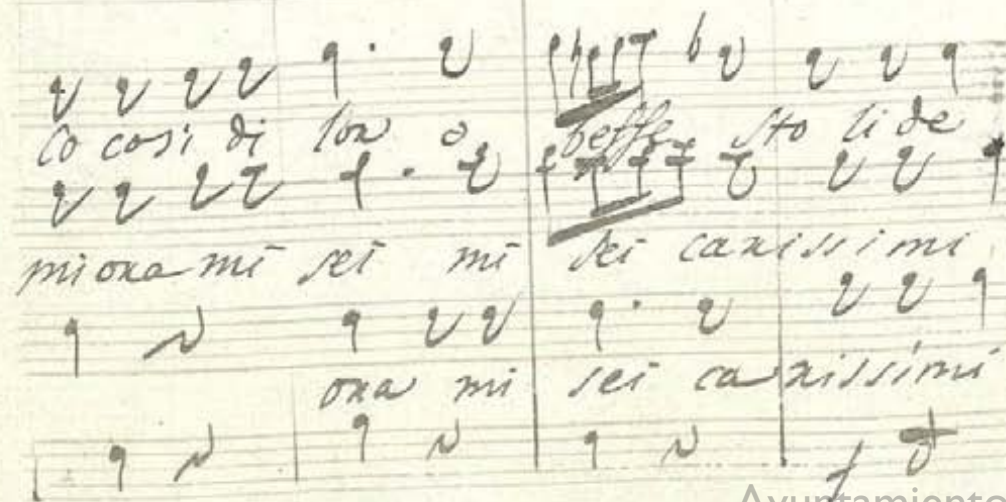 co cosi di lor o beffe sto li de
mi ora mi sei mi sei carissimi
ora mi sei carissimi
Ayuntamiento